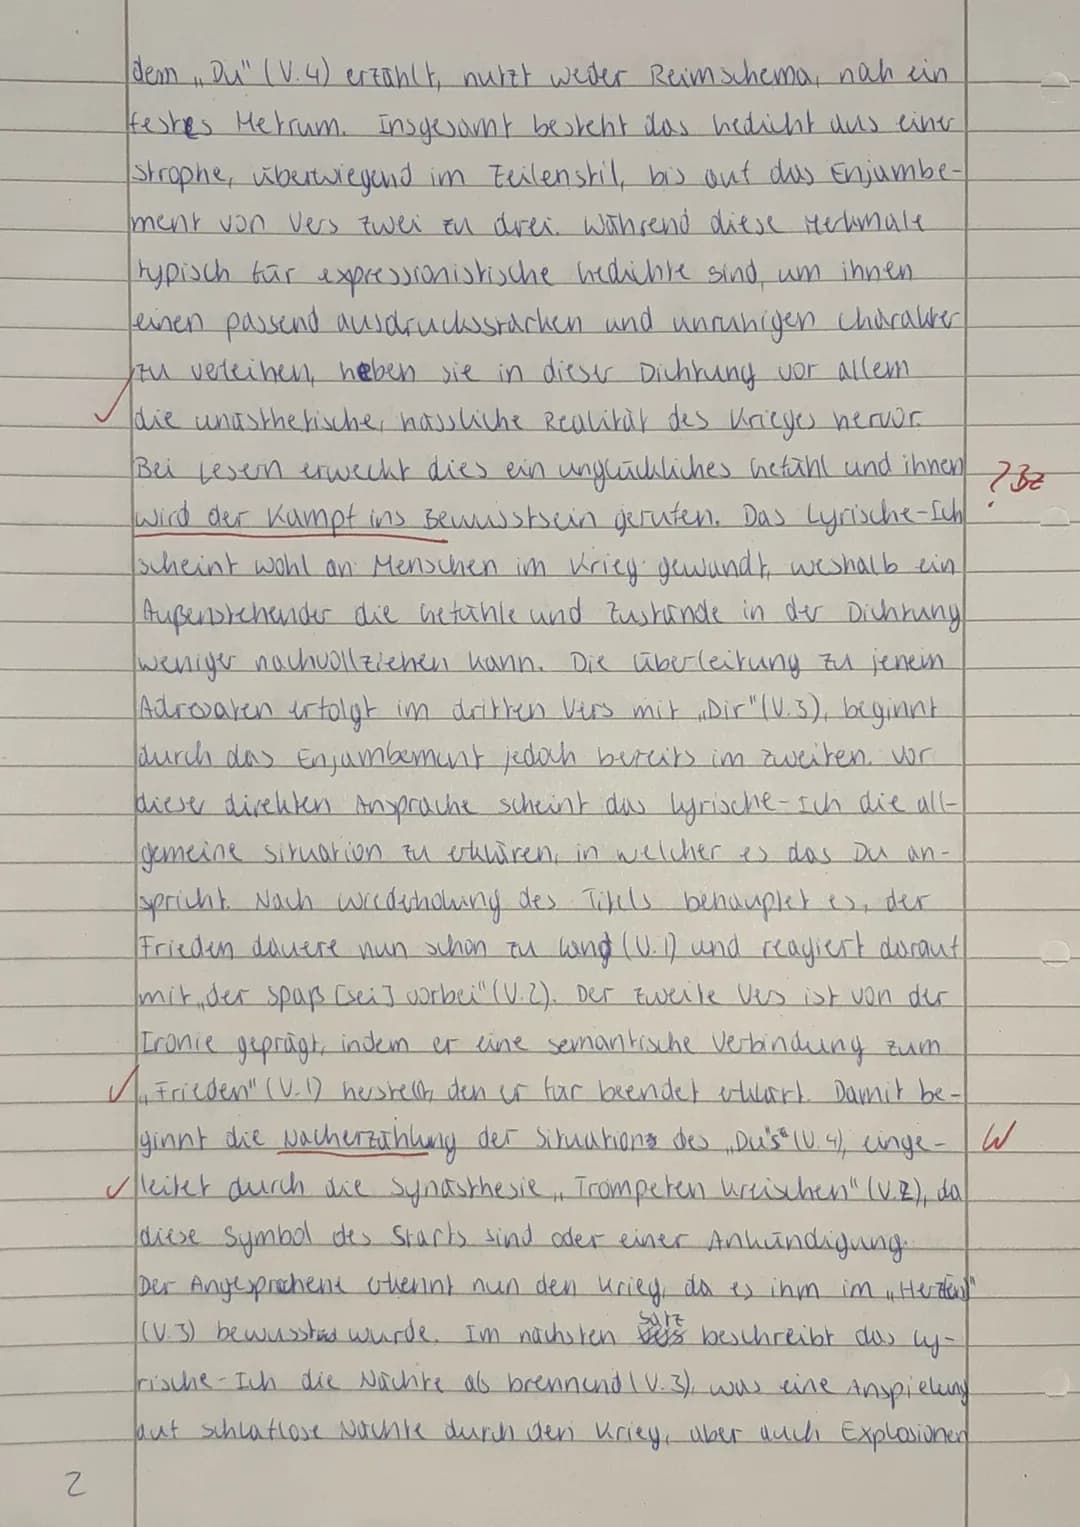 dem „Du" (V.4) erzählt, nutzt weder Reimschema, noch ein
festes Metrum. Insgesamt besteht das Gedicht aus einer
Strophe, überwiegend im Zeilenstil, bis auf das Enjambe-
ment von Vers zwei zu drei. Während diese Merkmale
typisch für expressionistische Gedichte sind, um ihnen
einen passend ausdrucksstarken und unruhigen Charakter
zu verleihen, heben sie in dieser Dichtung vor allem
die unästhetische, hässliche Realität des Krieges hervor.
Bei Lesern erweckt dies ein unglückliches Gefühl und ihnen
?Bz
wird der Kampf ins Bewusstsein gerufen. Das Lyrische-Ich
scheint wohl an Menschen im Krieg gewandt, weshalb ein
Außenstehender die Gefühle und Zustände in der Dichtung
weniger nachvollziehen kann. Die Überleitung zu jenem
Adressaten erfolgt im dritten Vers mit „Dir" (V.3), beginnt
durch das Enjambement jedoch bereits im zweiten. Vor
dieser direkten Ansprache scheint das Lyrische-Ich die all-
gemeine Situation zu erklären, in welcher es das Du an-
spricht. Nach Wiederholung des Titels behauptet es, der
Frieden dauere nun schon zu lang (V.1) und reagiert darauf
mit „der Spaß [sei] vorbei" (V.2). Der zweite Vers ist von der
Ironie geprägt, indem er eine semantische Verbindung zum
„Frieden" (V.1) herstellt, den er für beendet erklärt. Damit be-
ginnt die Nacherzählung der Situation des „Du's" (V.4), einge-
W
leitet durch die Synästhesie „Trompeten kreischen" (V.2), da
diese Symbol des Starts sind oder einer Ankündigung.
Der Angesprochene erkennt nun den Krieg, da es ihm im „Herzen"
(V.3) bewusst wurde. Im nächsten Satz beschreibt das Ly-
rische-Ich die Nächte als brennend (V.3), was eine Anspielung
auf schlaflose Nächte durch den Krieg, aber auch Explosionen
2